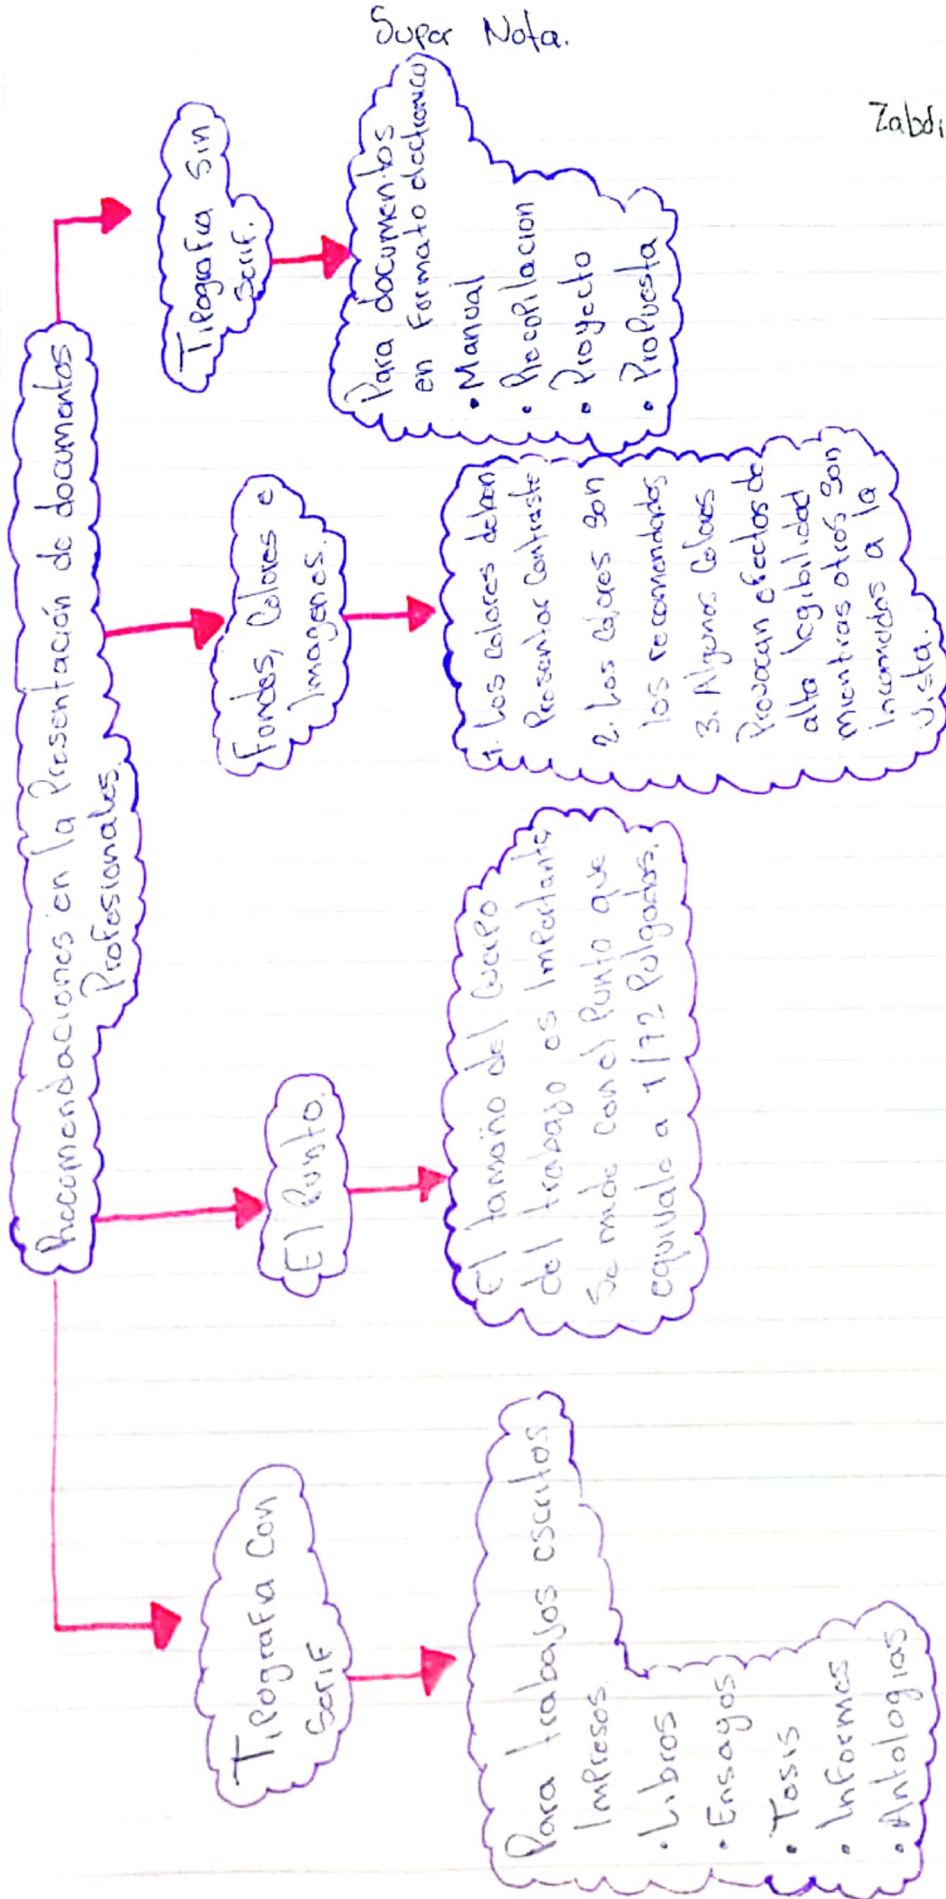 Super Nota.
Zabdi
Recomendaciones en la Presentación de documentos
Profesionales.
Tipografia Con
Serif
Para trabajos escritos
Impresos.
• Libros
• Ensayos
• Tesis
• Informes
• Antologias
El Punto.
El tamaño del cuerpo
del trabajo es importante
Se mide con el Punto que
equivale a 1/72 Pulgadas.
Fondos, Colores e
Imagenes.
1. Los Colores deben
Presentar Contraste
2. Los Colores son
los recomendados
3. Algunos Colores
Provocan efectos de
alta legibilidad
mientras otros son
incomodos a la
vista.
Tipografia Sin
Serif.
Para documentos
en Formato electronico
• Manual
• Recopilacion
• Proyecto
• Propuesta